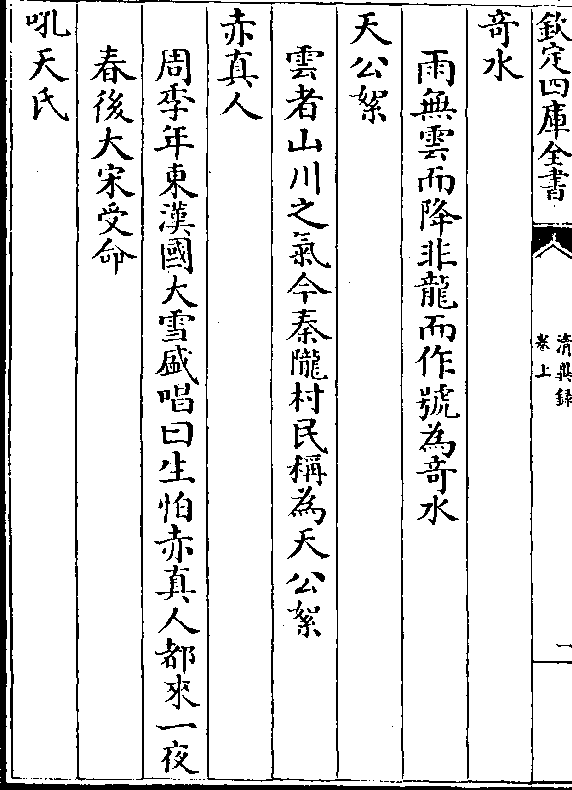 欽定四庫全書
清異録
卷上
一
竒水
雨無雲而降非龍而作號為竒水
天公絮
雲者山川之氣今秦隴村民稱為天公絮
赤真人
周季年東漢國大雪盛唱曰生怕赤真人都來一夜
春後大宋受命
吼天氏